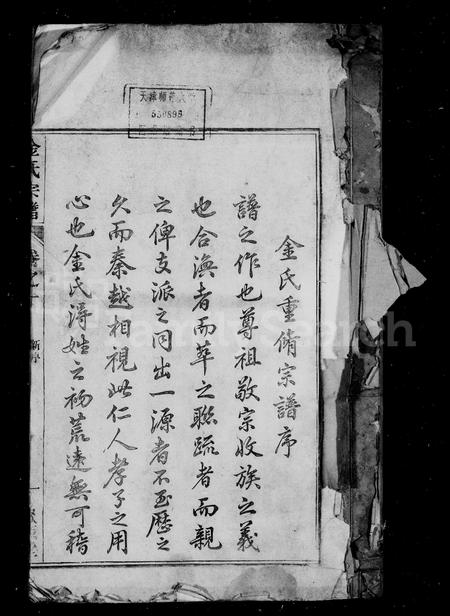 金氏重脩宗譜序
譜之作也尊祖敬宗收族之義
也合渙者而萃之聯疏者而親
之俾支派之同出一源者不至歷之
久而秦越相視此仁人孝子之用
心也金氏淂姓之初荒遠無可稽
金氏宗譜
卷之一
新序
一
天津師範大
550895
FamilySearch